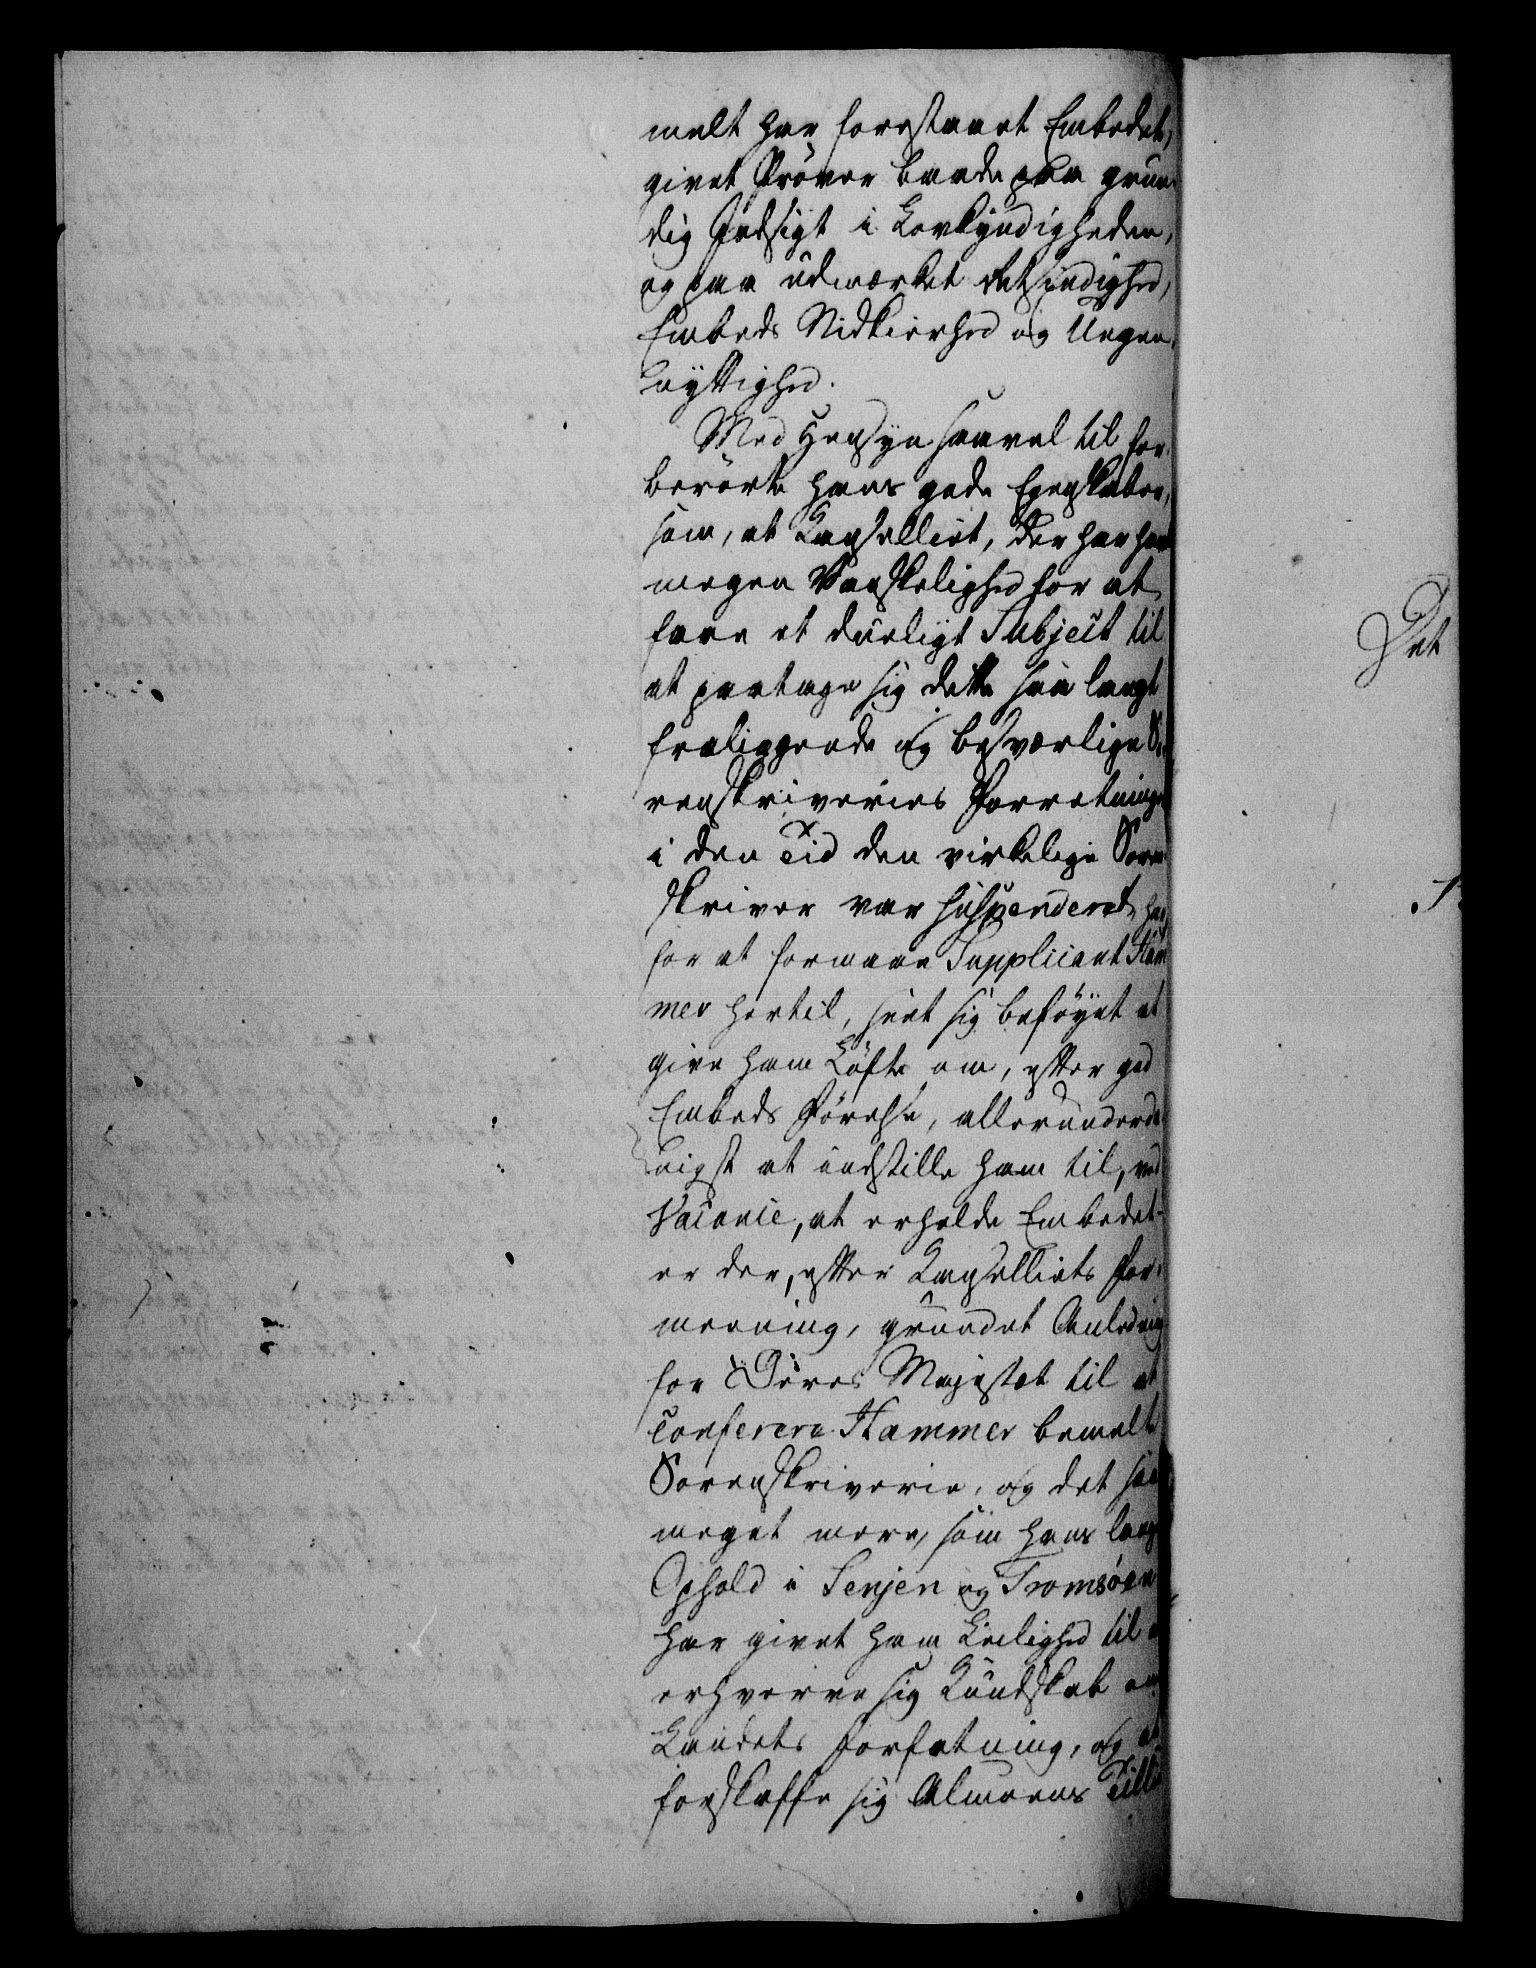 melt har forestaaet Embedet,
givet Prøver baade paa grun-
dig Indsigt i Lovkyndigheden,
og paa udmærket Retsindighed,
Embeds Nidkierhed og Uegen-
nyttighed.
Med Hensyn saavel til for-
berørte hans gode Egenskaber,
som, at Cancelliet, der har havt
megen Vanskelighed for at
faae et dueligt Subject til
at paatage sig dette saa langt
fraliggende og besværlige So-
renskriveries Forretninger
i den Tid den virkelige Soren-
skriver var suspenderet, har
for at formaae Supplicant Ham
mer hertil, seet sig beføyet at
give ham Løfte om, efter god
Embeds Førelse, allerunderda-
nigst at indstille ham til, ved
Vacance, at erholde Embedet-
er der, efter Cancelliets For-
meening, grundet Anledning
for Deres Majestæt til at
conferere Hammer bemelte
Sorenskriverie, og det saa
meget mere, som hans lange
Ophold i Senjen og Tromsøen
har givet ham Leilighed til at
erhverve sig Kundskab om
Landets Forfatning, og at
forskaffe sig Almeens
Det